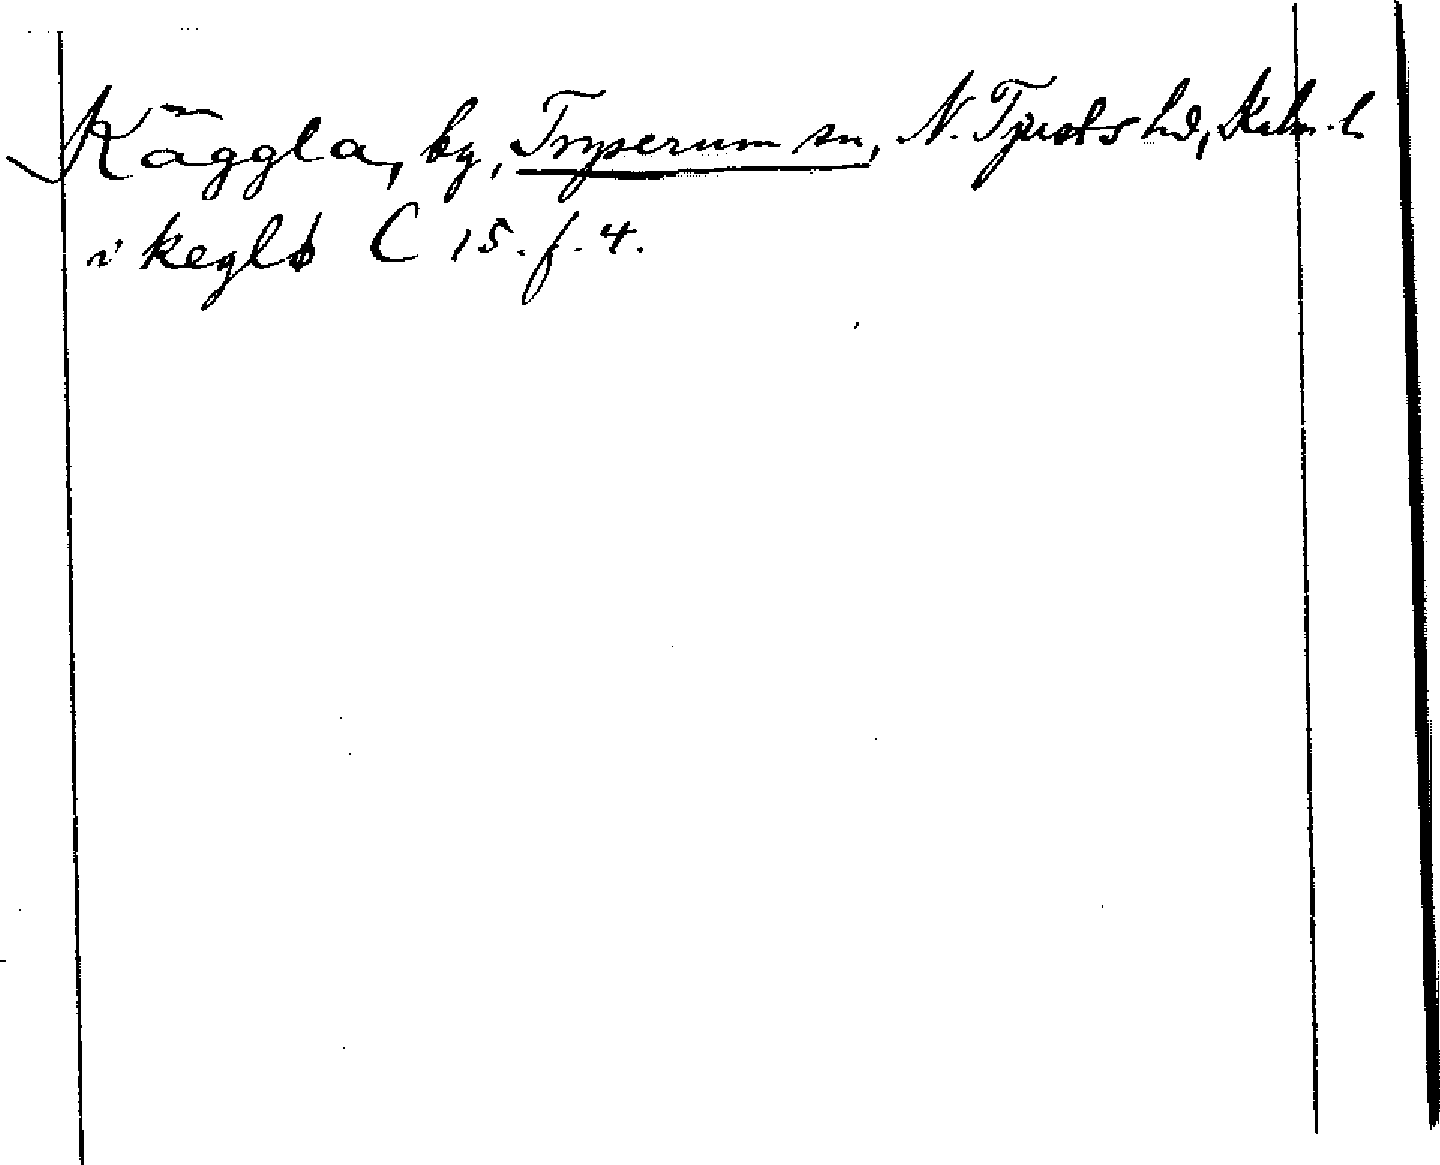 Käggla, by, Tryserum sn, N. Tjusts hd, Kalm. l.
i keglø C 15. f. 4.